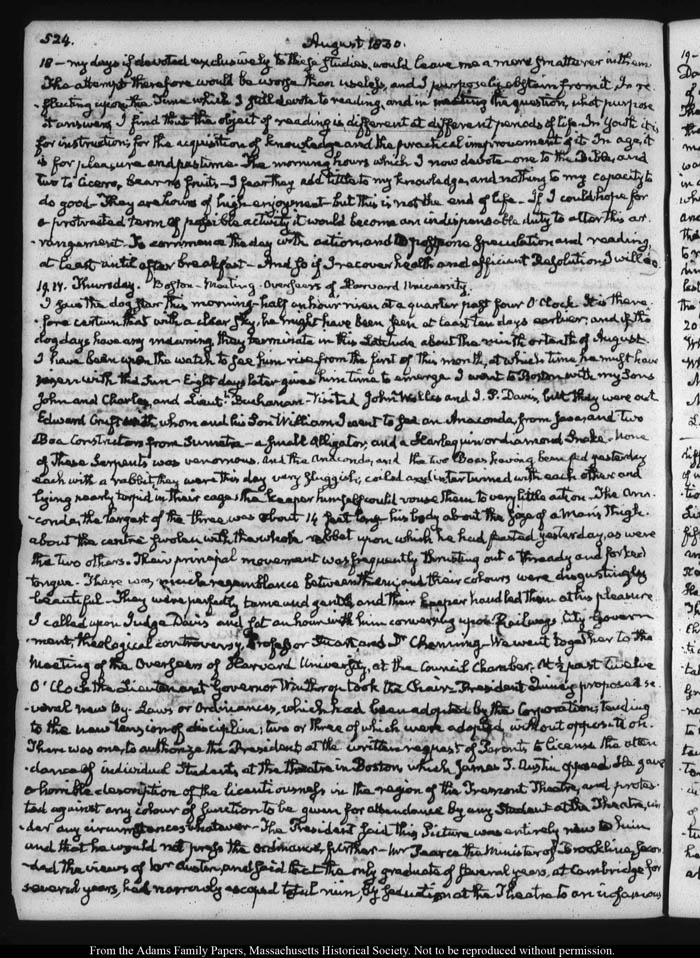 524.
August 1830.
18 — my days if devoted exclusively to these studies, would leave me a mere smatterer in them.
The attempt therefore would be worse than useless, and I purposely abstain from it. In re-
-flecting upon the Time which I still devote to reading, and in the question, what purpose
it answers I find that the object of reading is different at different periods of life. In Youth it is
for instruction; for the acquisition of knowledge and the practical improvement of it. In age, it
is for pleasure and pastime. The morning hours which I now devote—one to the Bible, and
two to Cicero, bear no fruits—I fear they add little to my knowledge, and nothing to my capacity to
do good—They are hours of high enjoyment—but this is not the end of life—If I could hope for
a protracted term of possible activity it would become an indispensable duty to alter this ar-
-rangement. To commence the day with action and to postpone speculation and reading,
at least until after breakfast—And so if I recover health and efficient Resolution I will do.
19. IV. Thursday. Boston—Meeting—Overseers of Harvard University.
I saw the dog star this morning half an hour risen at a quarter past four O'Clock. It is there-
-fore certain that with a clear sky, he might have been seen at least ten days earlier; and if the
dog days have any meaning they terminate in this Latitude about the ninth or tenth of August.
I have been upon the watch to see him rise from the first of this month, at which time he might have
risen with the Sun—Eight days later gives him time to emerge. I went to Boston with my Sons
John and Charles, and Lieutt. Buchanan—Visited John Welles and I. P. Davis, but they were out
Edward Cruft with whom and his Son William I went to see an Anaconda, from Java, and two
Boa Constrictors from Sumatra—a small Alligator, and a Harlequin or diamond Snake. None
of these Serpents was venomous. and the Anaconda, and the two Boas having been fed yesterday
each with a rabbit, they were this day very sluggish; coiled and intertwined with each other and
lying nearly torpid in their cage; the keeper himself could rouse them to very little action. The Ana-
-conda, the largest of the three was about 14 feet long—his body about the size of a man's thigh.
about the centre swollen with the whole rabbit upon which he had feasted yesterday, as were
the two others. Their principal movement was frequently thrusting out a thready and forked
tongue. There was much resemblance between them; and their colours were disgustingly
beautiful—They were perfectly tame and gentle, and their keeper handled them at his pleasure
I called upon Judge Davis and sat an hour with him conversing upon Railways, City Govern-
-ment, theological controversy, Professor Stuart and Dr Channing—We went together to the
Meeting of the Overseers of Harvard University, at the Council Chamber. At ½ past twelve
O'Clock the Lieutenant Governor Winthrop took the Chair. President Quincy proposed se-
-veral new By-Laws or Ordinances, which had been adopted by the Corporation; tending
to the new tension of discipline; two or three of which were adopted, without opposition.
There was one, to authorize the President, at the written request of Parents, to license the atten-
-dance of individual Students, at the theatre in Boston, which James T. Austin opposed. He gave
a horrible description of the licentiousness in the region of the Tremont Theatre, and protes-
-ted against any colour of sanction to be given for attendance by any Student at the Theatre, un-
-der any circumstances whatever—The President said this Picture was entirely new to him
and that he would not press the ordinance further—Mr Pearce the Minister of Brookline, secon-
-ded the views of Mr Austin, and said that the only graduate of several years, at Cambridge for
several years, had narrowly escaped total ruin, by seduction at the Theatre to an infamous
From the Adams Family Papers, Massachusetts Historical Society. Not to be reproduced without permission.